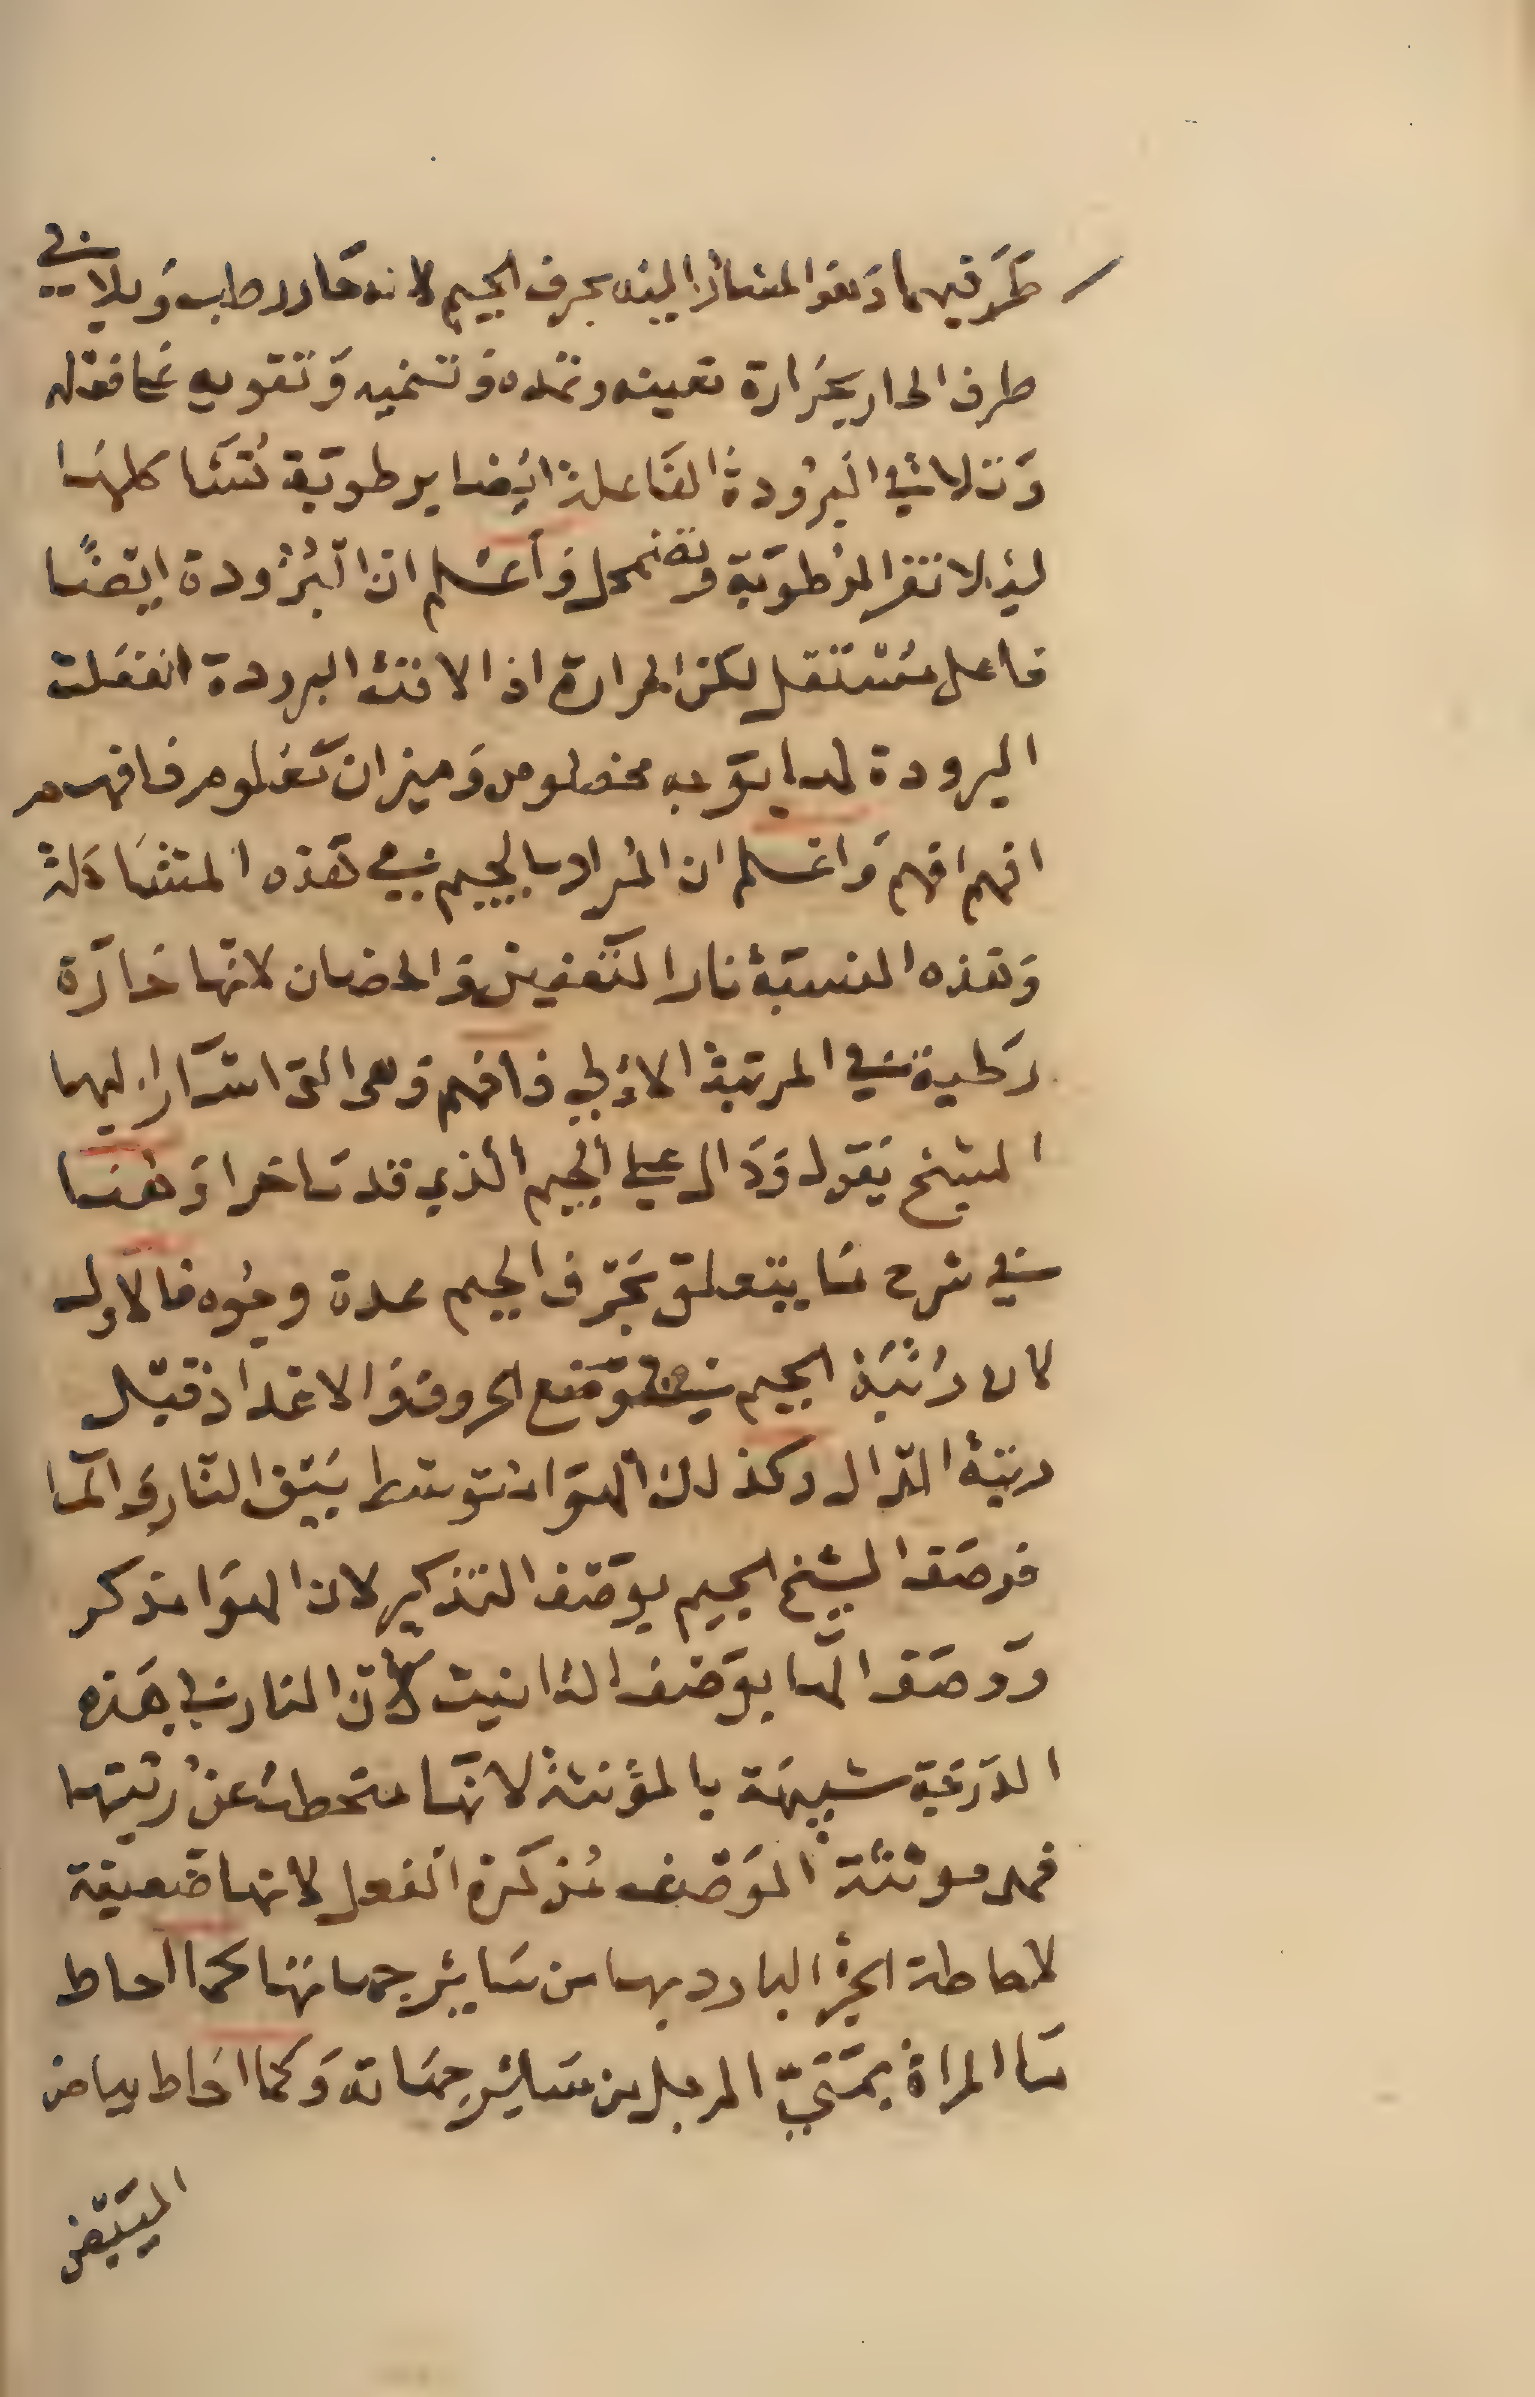 طرفيهما وهو المشار اليه بحرف الجيم لانه حار رطب ويلاقي
طرف الحار بحرارة تعينه وتمده وتنميه وتقويه علي فعله
وتلاشي البرودة الفاعلة ايضا برطوبة تنشا كلها
ليلا تنفر الرطوبة وتضمحل واعلم ان البرودة ايضًا
فاعل مستقل لكن الحرارة اذا لاقت البرودة انفعلت
البرودة لها بوجه مخصوص وميزان معلوم فافهم
افهم افهم واعلم ان المراد بالجيم في هذه المشاكلة
وهذه النسبة نار التعفين والحضان لانها حارة
رطبة في المرتبة الاولي فافهم وهي التي اشار اليها
الشيخ بقوله ودال علي الجيم الذي قد تاخرا وهنا
في شرح ما يتعلق بحرف الجيم عدة وجوه فالاول
كان رتبة الجيم في وضع الحروف والاعداد قبل
رتبة الدال وكذلك الهوا متوسط بين النار والما
فوصف الشيخ الجيم بوصف التذكير لان الهوا مذكر
ووصف الما بوصف التانيث لان النار في هذه
الدرجة شبيهة بالمؤنثة لانها منحطة عن رتبتها
فهي مونثة الوصف مذكرة الفعل لانها ضعيفة
لاحاطة الجزء البارد بها من سائر جهاتها كما احاط
ما المراة بمني الرجل من سائر جهاته وكما احاط بياض
البيض